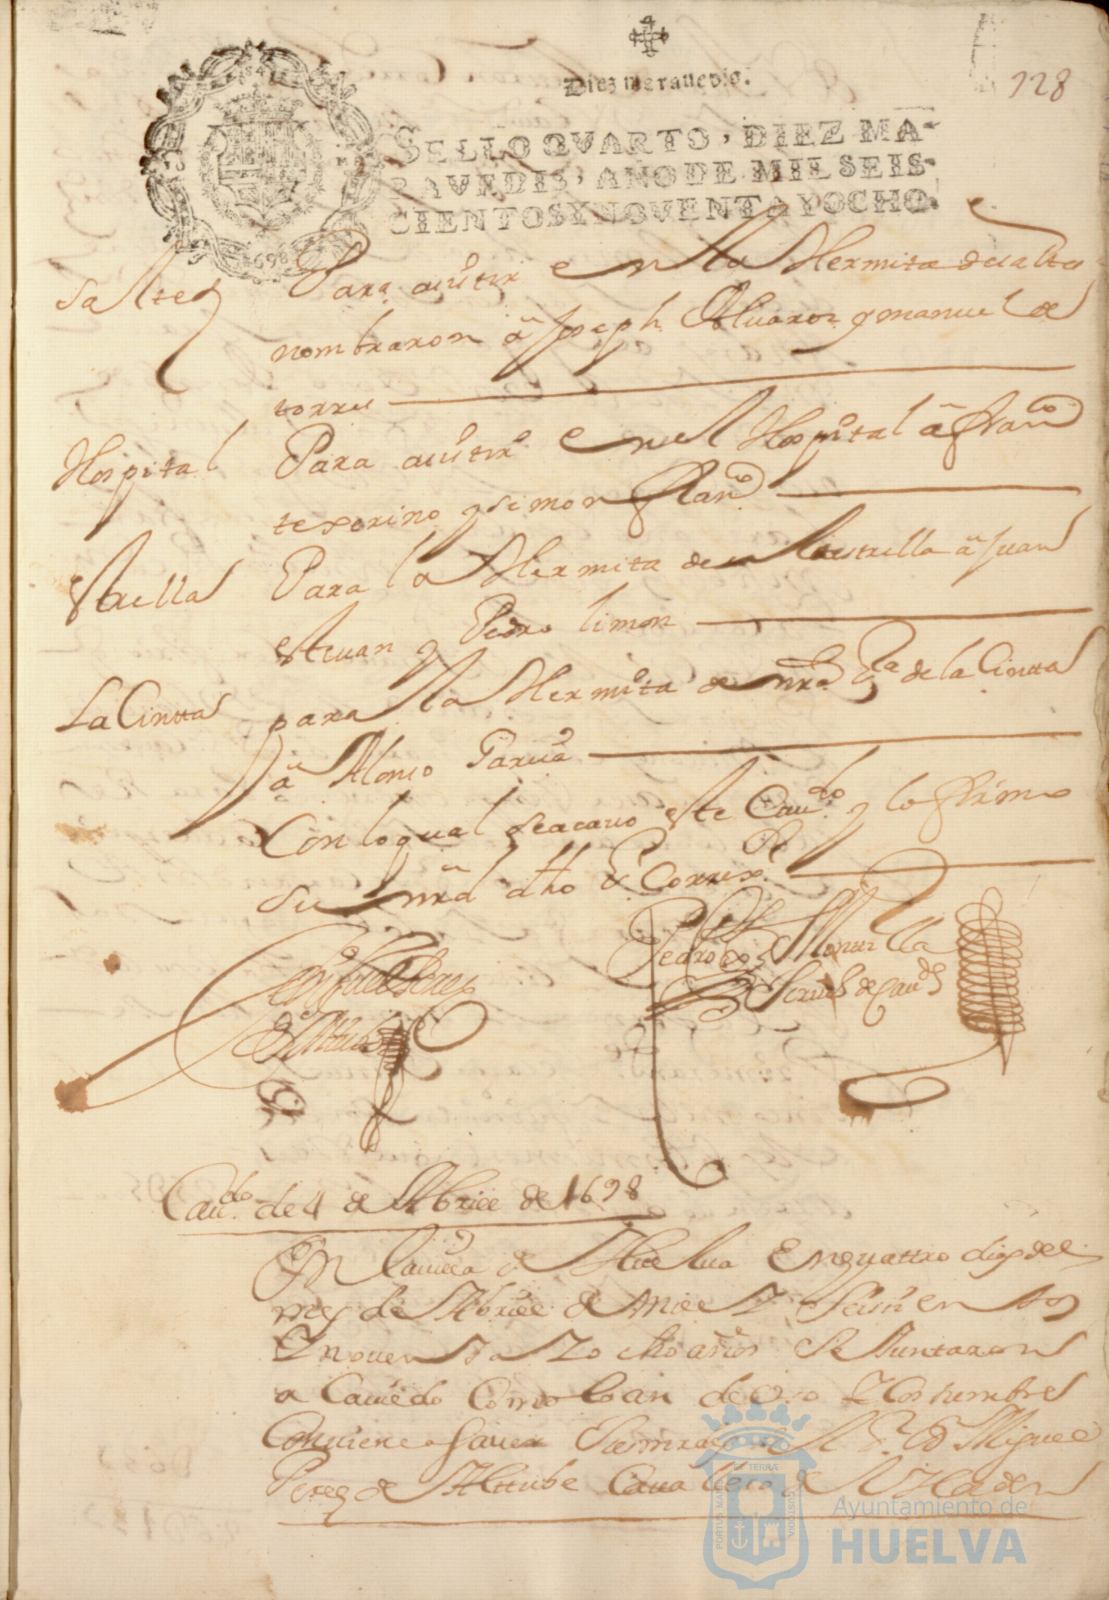 128
Diez marauedis.
SELLO QVARTO, DIEZ MA-
RAVEDIS, AÑO DE MIL SEIS-
CIENTOS Y NOVENTA Y OCHO.
1698
Saltes
Para acistir en la Hermita de saltes
nombraron â Joseph Albarez y manuel de
torres
Hospital
Para acistir en el Hospital â Franco
texerino y simon Franco
estrella
Para la Hermita de la estrella â Juan
esteuan y Pedro limon
La Cintta
para la Hermita de nra Sa de la Cintta
â Alonso Garcia
Con lo qual se acauo este Caudo y lo firmo
su mrd dho Sr Correxor
Pedro de Montilla
Scriuo de Caudo
Perez
de Attube
Caudo de 4 de Abril de 1698
En la villa de Huelua En quattro dias del
mes de Abril de mil y seisçientos
y nouenta y ocho años se Juntaron
a Cauildo Como lo an de Uso y Costumbre
Conuiene a sauer Su mrd el Sr Dn Miguel
Perez de Attube Cauallero de la Horden
PORTUS MARIS ET TERRÆ CUSTODIA
Ayuntamiento de
HUELVA